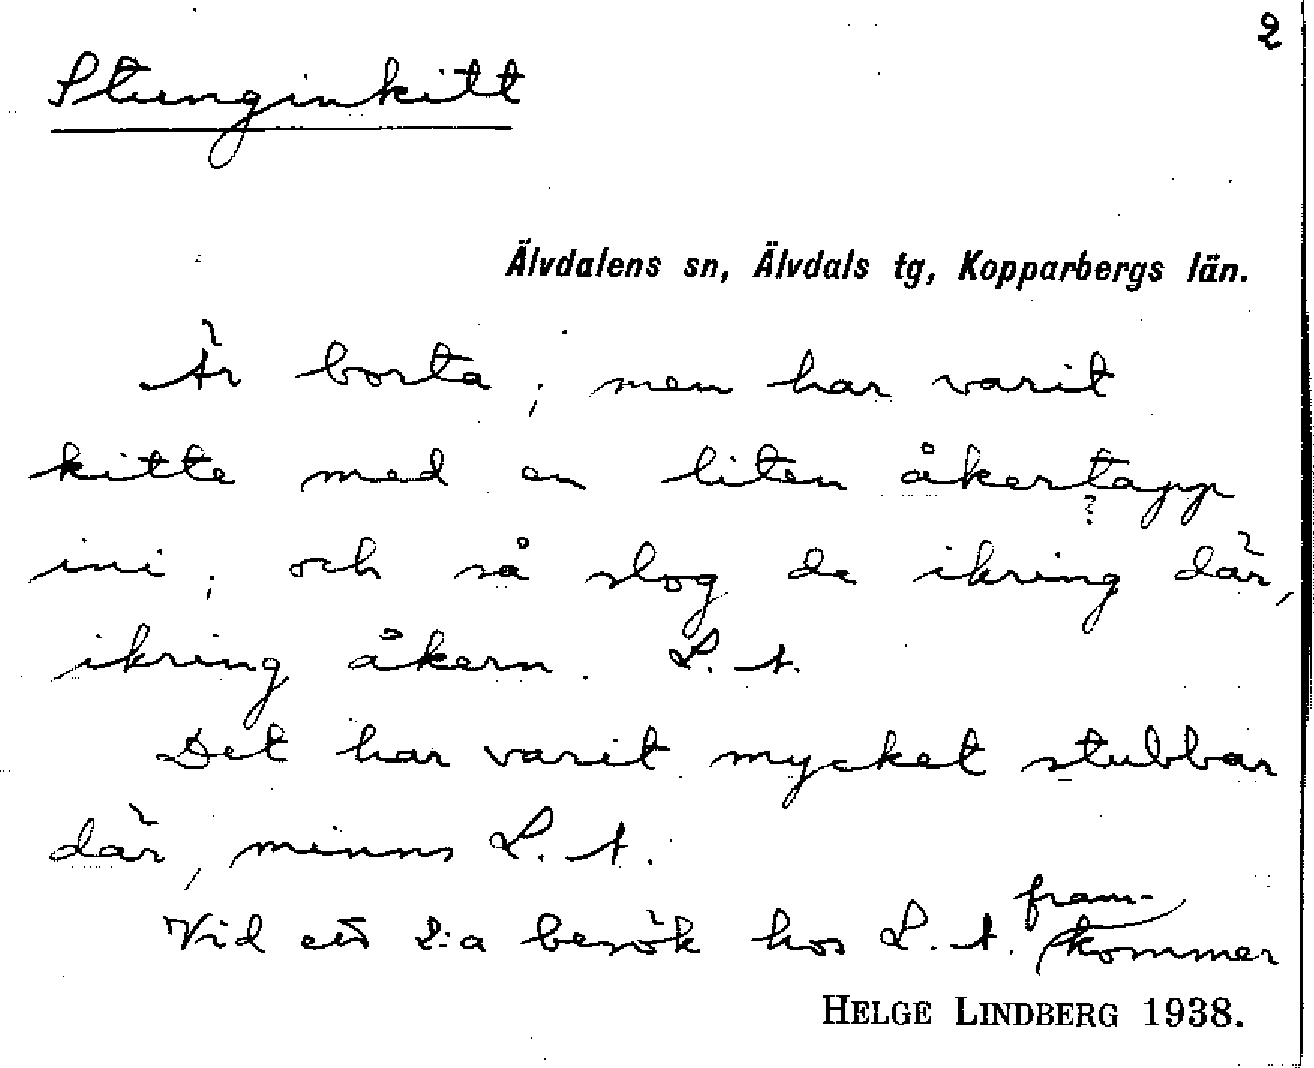 2
Stunginkitt
Älvdalens sn, Älvdals tg, Kopparbergs län.
Är borta; men har varit
kitte med en liten åkertapp
?
ini, och så slog de ikring där,
ikring åkern. L. A.
Det har varit mycket stubbar
där, minns L. A.
fram-
Vid ett 2:a besök hos L. A. kommer
HELGE LINDBERG 1938.